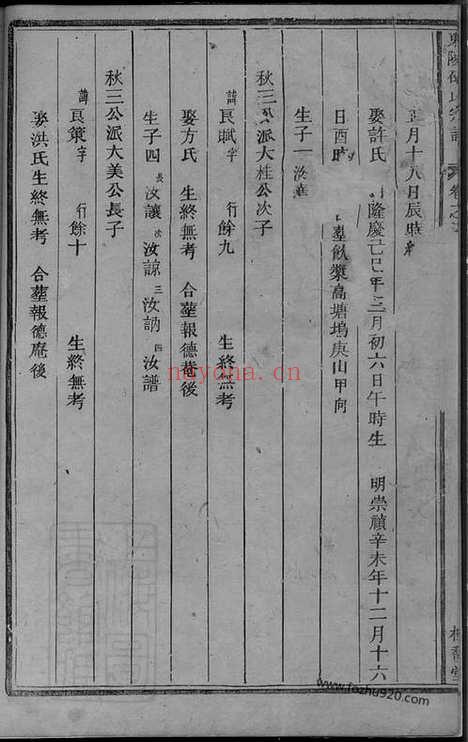 正月十八日辰時
娶許氏 隆慶己巳年三月初六日午時生 明崇禎辛未年十二月十六
日酉時 塟飲漿高塘塢庚山甲向
生子一
秋三公派大桂公次子
諱良賦字 行餘九 生終無考
娶方氏 生終無考 合塟報德菴後
生子四 長汝讓 次汝諒 三汝訥 四汝譜
秋三公派大美公長子
諱良策字 行餘十 生終無考
娶洪氏生終無考 合塟報德庵後
nayona.cn
www.fozhu920.com